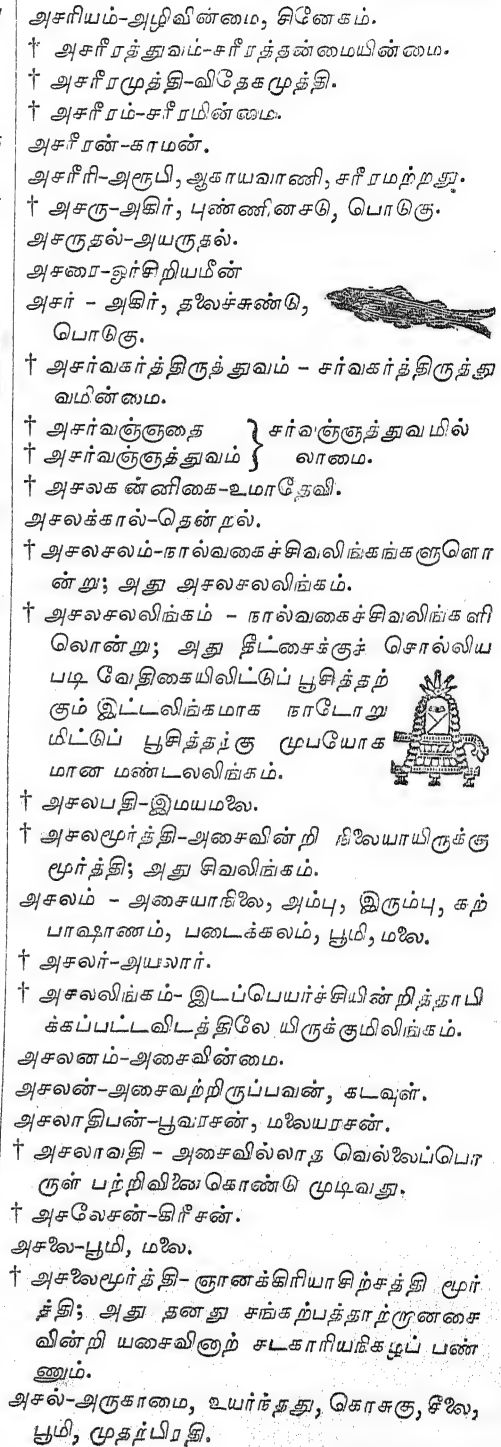 அசரியம்-அழிவின்மை, சினேகம்.
† அசரீரத்துவம்-சரீரத்தன்மையின்மை.
† அசரீரமுத்தி-விதேகமுத்தி.
† அசரீரம்-சரீரமின்மை.
அசரீரன்-காமன்.
அசரீரி-அரூபி, ஆகாயவாணி, சரீரமற்றது.
† அசரு-அகிர், புண்ணினசடு, பொடுகு.
அசருதல்-அயருதல்.
அசரை-ஓர்சிறியமீன்
அசர் - அகிர், தலைச்சுண்டு,
பொடுகு.
† அசர்வகர்த்திருத்துவம் - சர்வகர்த்திருத்து
வமின்மை.
† அசர்வஞ்ஞதை } சர்வஞ்ஞத்துவமில்
† அசர்வஞ்ஞத்துவம் } லாமை.
† அசலகன்னிகை-உமாதேவி.
அசலக்கால்-தென்றல்.
† அசலசலம்-நால்வகைச்சிவலிங்கங்களுளொ
ன்று; அது அசலசலலிங்கம்.
† அசலசலலிங்கம் - நால்வகைச்சிவலிங்களி
லொன்று; அது தீட்சைக்குச் சொல்லிய
படி வேதிகையிலிட்டுப் பூசித்தற்
கும் இட்டலிங்கமாக நாடோறு
மிட்டுப் பூசித்தற்கு முபயோக
மான மண்டலலிங்கம்.
† அசலபதி-இமயமலை.
† அசலமூர்த்தி-அசைவின்றி நிலையாயிருக்கு
மூர்த்தி; அது சிவலிங்கம்.
அசலம் - அசையாநிலை, அம்பு, இரும்பு, கற்
பாஷாணம், படைக்கலம், பூமி, மலை.
† அசலர்-அயலார்.
† அசலலிங்கம்- இடப்பெயர்ச்சியின்றித்தாபி
க்கப்பட்டவிடத்திலே யிருக்குமிலிங்கம்.
அசலனம்-அசைவின்மை.
அசலன்-அசைவற்றிருப்பவன், கடவுள்.
அசலாதிபன்-பூவரசன், மலையரசன்.
† அசலாவதி - அசைவில்லாத வெல்லைப்பொ
ருள் பற்றிவினைகொண்டு முடிவது.
† அசலேசன்-கிரீசன்.
அசலை-பூமி, மலை.
† அசலைமூர்த்தி-ஞானக்கிரியாசிற்சத்தி மூர்
த்தி; அது தனது சங்கற்பத்தாற்றானசை
வின்றி யசைவினாற் சடகாரியநிகழப் பண்
ணும்.
அசல்-அருகாமை, உயர்ந்தது, கொசுகு, சீலை,
பூமி, முதற்பிரதி.